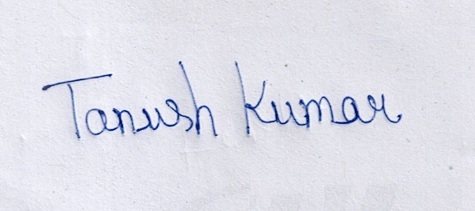 Tanush Kumar